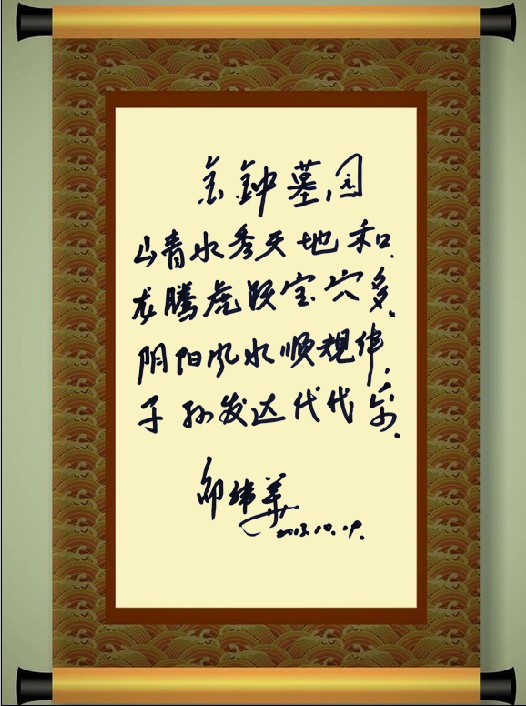 金钟墓园
山青水秀天地和.
龙腾虎跃宝穴多.
阴阳风水顺规律.
子孙发达代代乐.
邵伟华
2013.10.19.